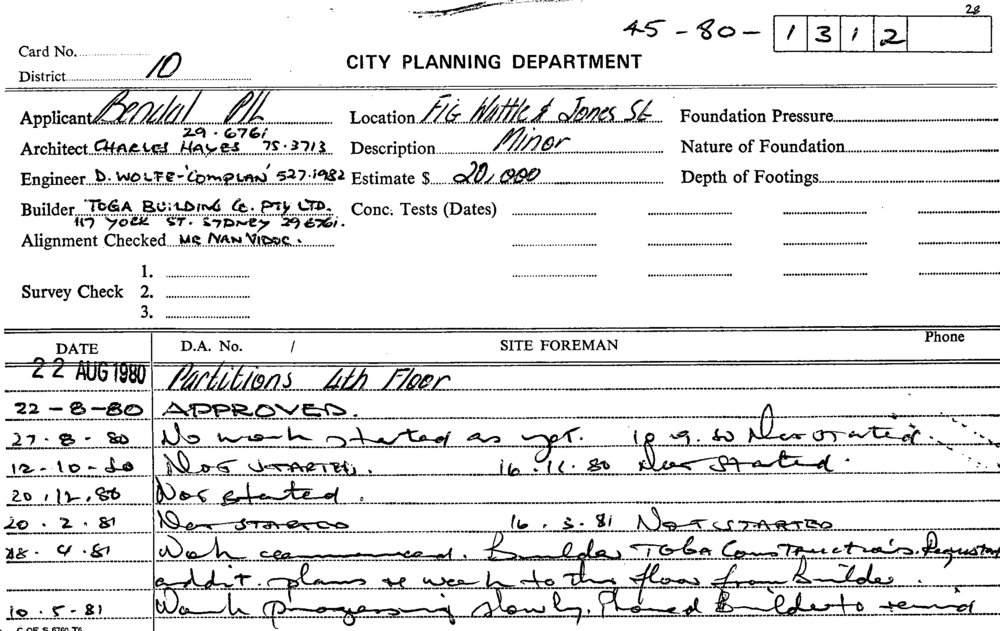 28
45-80- 1312
Card No.
CITY PLANNING DEPARTMENT
District 10
Applicant Bendal P/L Location Fig Wattle & Jones St Foundation Pressure
29.6761
Architect CHARLES HAYES 75.3713 Description Minor Nature of Foundation
Engineer D. WOLFE-'COMPLAN' 527.1982 Estimate $ 20,000 Depth of Footings
Builder TOGA BUILDING Co. PTY LTD. Conc. Tests (Dates)
117 YORK ST. SYDNEY 296761.
Alignment Checked MR IVAN VIDOC.
1.
Survey Check 2.
3.
DATE D.A. No. / SITE FOREMAN Phone
22 AUG 1980 Partitions 4th Floor
22-8-80 APPROVED.
27.8.80 No work started as yet. 10.9.80 Not started.
12-10-80 Not STARTED. 16.11.80 Not started.
20.12.80 Not started.
20.2.81 Not STARTED 16.3.81 NOT STARTED
28.4.81 Work commenced. Builder TOGA Constructions. Requested
addit. plans re work to this floor from builder.
10.5-81 Work progressing slowly. Phoned Builder to remind
C OF S 6760 T6